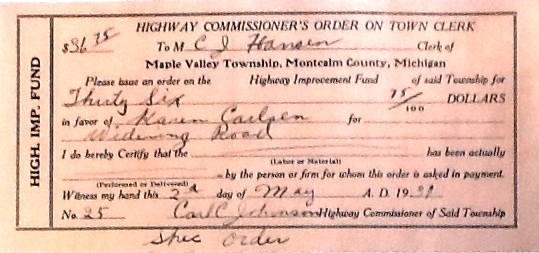 HIGH. IMP. FUND
HIGHWAY COMMISSIONER'S ORDER ON TOWN CLERK
$36 75 To M C J Hansen Clerk of
Maple Valley Township, Montcalm County, Michigan
Please issue an order on the Highway Improvement Fund of said Township for
Thirty Six 75/100 DOLLARS
in favor of Karen Carlsen for
Widening Road
I do hereby Certify that the has been actually
(Labor or Material)
by the person or firm for whom this order is asked in payment.
(Performed or Delivered)
Witness my hand this 2d day of May A. D. 19
No. 25 Carl C Johnson Highway Commissioner of Said Township
Spec Order